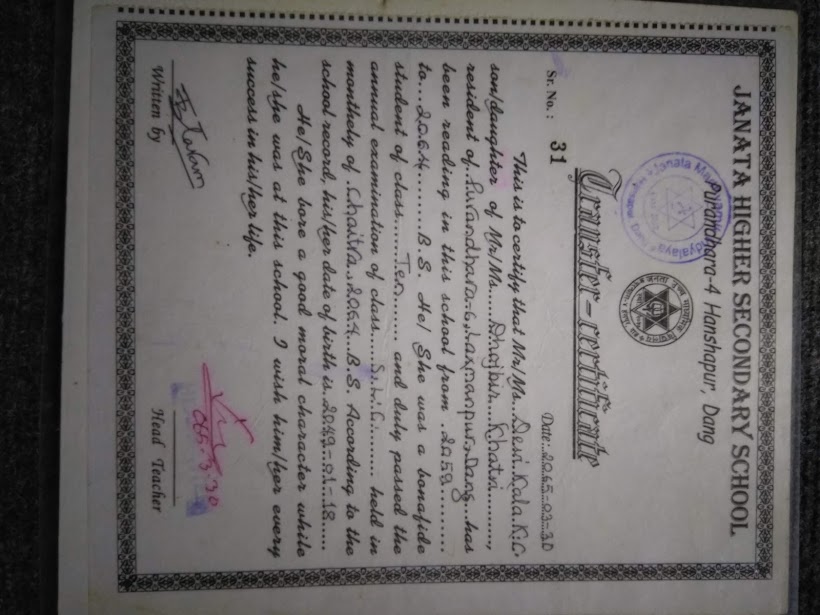 JANATA HIGHER SECONDARY SCHOOL
Purandhara-4 Hanshapur, Dang
Transfer-certificate
Sr. No.: 31 Date:..2065-03-30
This is to certify that Mr/Ms...Devi.Kala.K.C.
son/daughter of Mr/Ms.....Dhajbir...Khatri..........,
resident of.Purandhara-6,.......Dang..has
been reading in this school from .2059.........
to...2064.........B.S. He/ She was a bonafide
student of class.......Ten....... and duly passed the
annual examination of class....S.L.C........ held in
monthely of .Chaitra..2064..B.S. According to the
school record, his/her date of birth is.2049-01-18.....
He/She bore a good moral character while
he/she was at this school. I wish him/her every
success in his/her life.
065.3.30
Written by Head Teacher